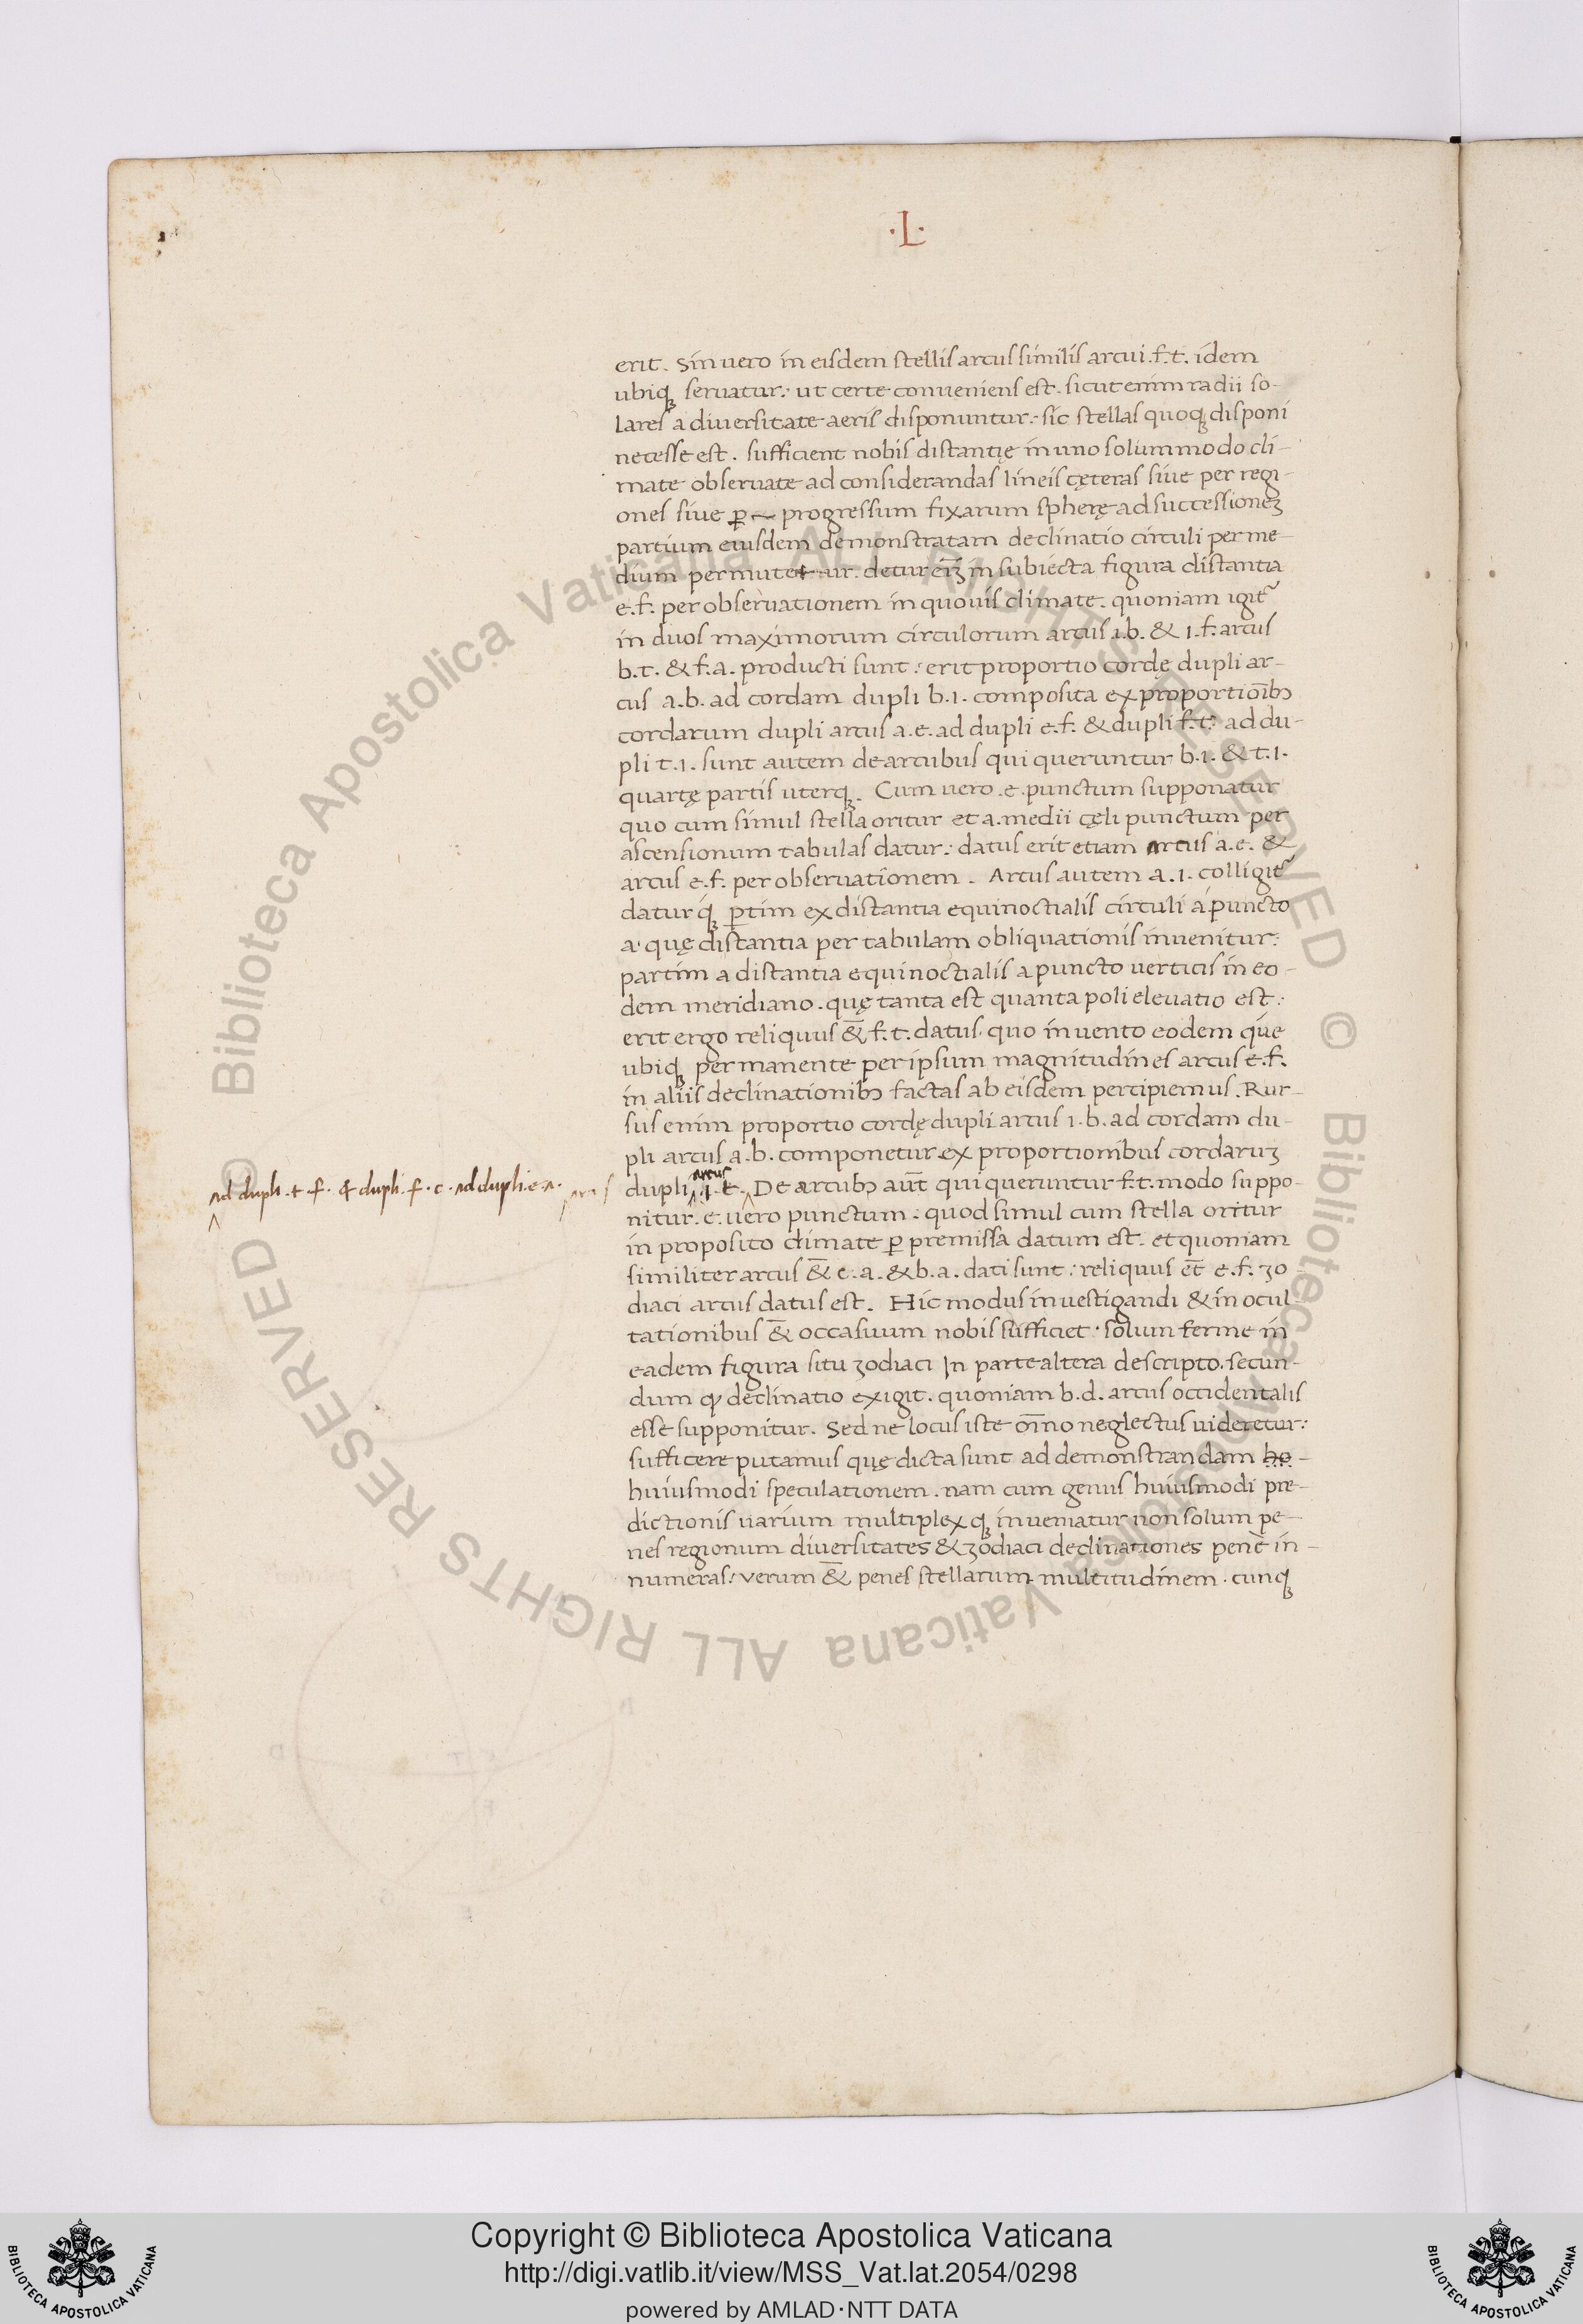 ·L·
erit. Sin uero in eisdem stellis arcus similis arcui .f.t. idem
ubiqꝫ seruatur: ut certe conueniens est. sicut enim radii so-
lares a diuersitate aeris disponuntur: sic stellas quoqꝫ disponi
necesse est. sufficient nobis distantię in uno solummodo cli-
mate obseruate ad considerandas lineis cęteras siue per regi-
ones siue ꝑ progressum fixarum spherę ad successioneꝫ
partium eiusdem demonstratam declinatio circuli per me-
dium permutetur. detur em̄ in subiecta figura distantia
e.f. per obseruationem in quouis climate. quoniam igit᷑
in duos maximorum circulorum arcus i.b. & i.f. arcus
b.t. & f.a. producti sunt: erit proportio cordę dupli ar-
cus a.b. ad cordam dupli b.i. composita ex proportionibꝫ
cordarum dupli arcus a.e. ad dupli e.f. & dupli f.t. ad du-
pli t.i. sunt autem de arcubus qui queruntur b.i. & t.i.
quartę partis uterqꝫ. Cum uero .e. punctum supponatur
quo cum simul stella oritur et a. medii cęli punctum per
ascensionum tabulas datur: datus erit etiam arcus a.e. &
arcus e.f. per obseruationem. Arcus autem a.i. colligit᷑
daturqꝫ ꝑtim ex distantia equinoctialis circuli a puncto
a. quę distantia per tabulam obliquationis inuenitur:
partim a distantia equinoctialis a puncto uerticis in eo-
dem meridiano. quę tanta est quanta poli eleuatio est:
erit ergo reliquus &̄ f.t. datus. quo inuento eodem que
ubiqꝫ permanente per ipsum magnitudines arcus e.f.
in aliis declinationibꝫ factas ab eisdem percipiemus. Rur-
sus enim proportio cordę dupli arcus i.b. ad cordam du-
pli arcus a.b. componetur ex proportionibus cordaruꝫ
arcus
ad dupli .t.f. & dupli .f.c. ad dupli .e.a.
dupli .i.t. De arcubꝫ aut̄ qui queruntur f.t. modo suppo-
nitur. e. uero punctum: quod simul cum stella oritur
in proposito climate ꝑ premissa datum est. et quoniam
similiter arcus &̄ e.a. & b.a. dati sunt: reliquus et̄ e.f. zo-
diaci arcus datus est. Hic modus inuestigandi & in ocul-
tationibus &̄ occasuum nobis sufficiet. solum ferme in
eadem figura situ zodiaci In parte altera descripto. secun-
dum ꝙ declinatio exigit. quoniam b.d. arcus occidentalis
esse supponitur. Sed ne locus iste om̄no neglectus uideretur:
sufficere putamus quę dicta sunt ad demonstrandam ho-
huiusmodi speculationem. nam cum genus huiusmodi pre-
dictionis uarium multiplexqꝫ inueniatur non solum pe-
nes regionum diuersitates & zodiaci declinationes pene in-
numeras: verum &̄ penes stellarum multitudinem. cunqꝫ
© Biblioteca Apostolica Vaticana ALL RIGHTS RESERVED
© Biblioteca Apostolica Vaticana ALL RIGHTS RESERVED
Copyright © Biblioteca Apostolica Vaticana
http://digi.vatlib.it/view/MSS_Vat.lat.2054/0298
powered by AMLAD·NTT DATA
BIBLIOTECA APOSTOLICA VATICANA
BIBLIOTECA APOSTOLICA VATICANA